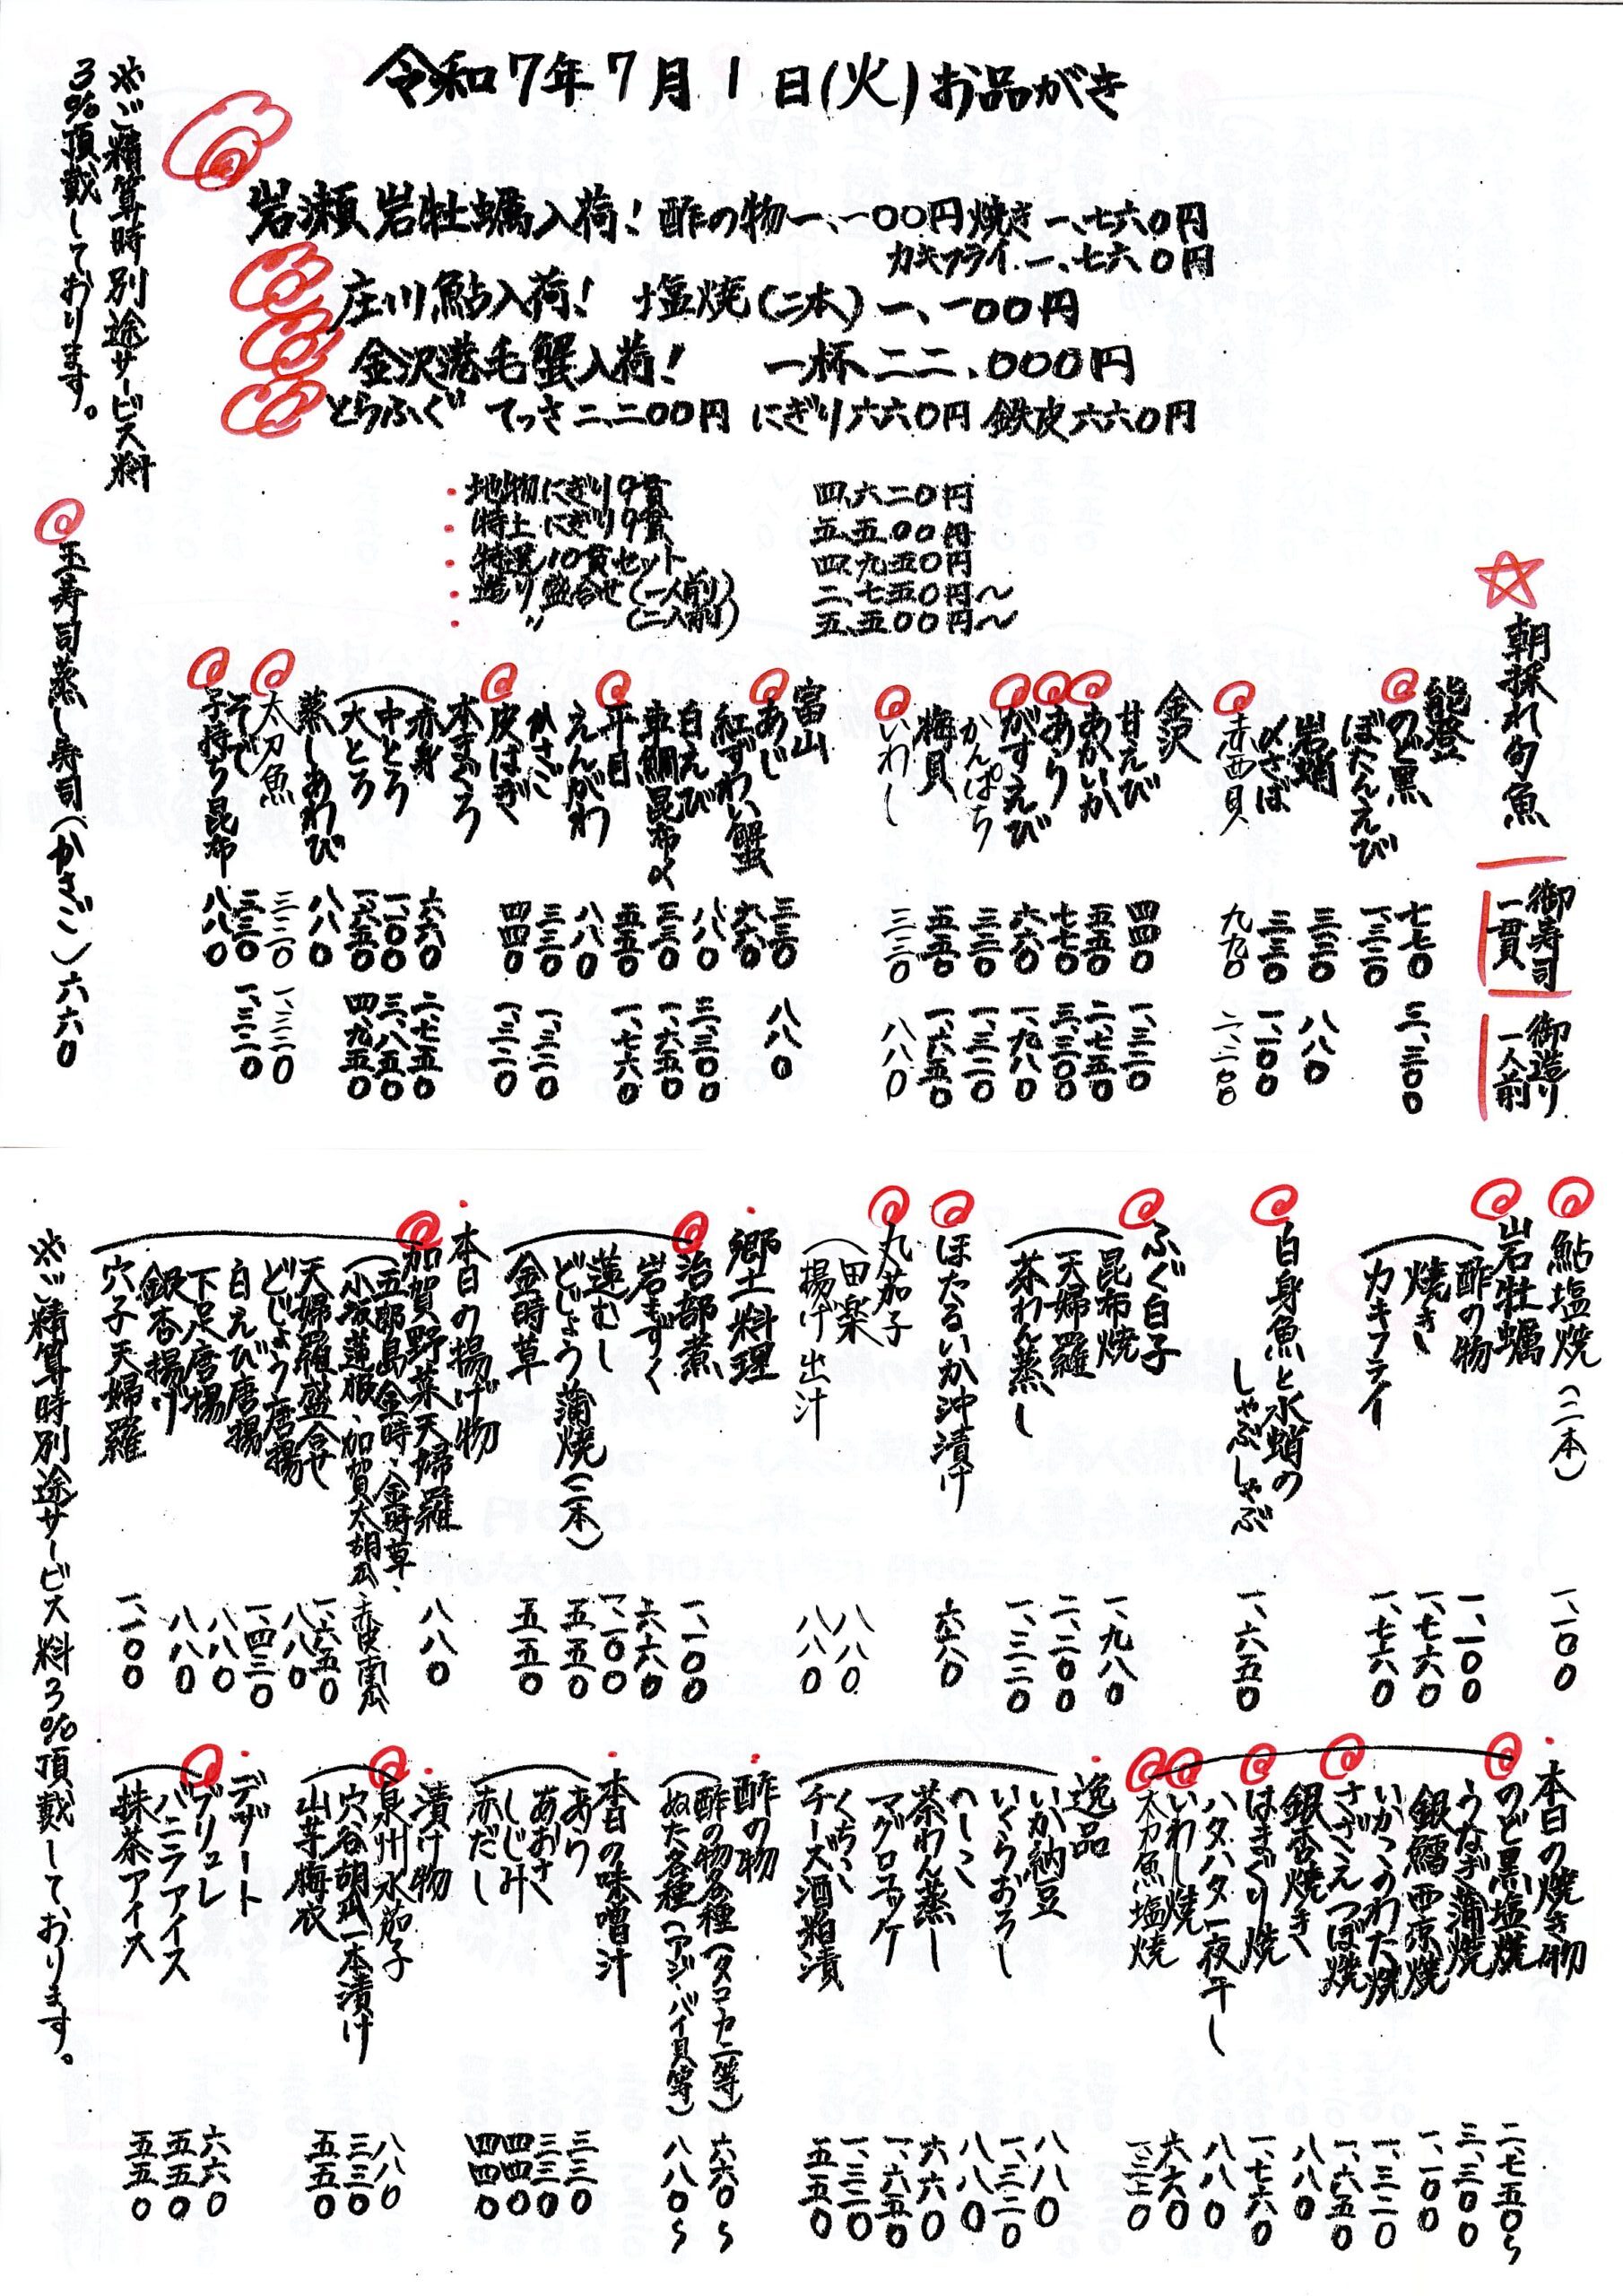 令和7年7月1日(火)お品がき
※ご精算時別途サービス料
3%頂戴しております。
岩瀬岩牡蠣入荷! 酢の物一、一〇〇円 焼き一、七六〇円
カキフライ 一、七六〇円
庄川鮎入荷! 塩焼(二本)一、一〇〇円
金沢港毛蟹入荷! 一杯二二、〇〇〇円
とらふぐ てっさ二、二〇〇円 にぎり六六〇円 鉄皮六六〇円
・地物にぎり9貫 四、六二〇円
・特上にぎり9貫 五、五〇〇円
・特選10貫セット 四、九五〇円
・造り盛合せ(一人前) 二、七五〇円〜
・〃(二人前) 五、五〇〇円〜
☆朝採れ旬魚 御寿司一貫 御造り一人前
能登
のど黒 七七〇 三、三〇〇
ぼたんえび 一、三二〇
岩蛸 三三〇 八八〇
〆さば 三三〇 一、一〇〇
赤西貝 九九〇 二、二〇〇
金沢
甘えび 四四〇 一、三二〇
あかいか 五五〇 二、七五〇
あり 七七〇 三、三〇〇
がすえび 六六〇 一、九八〇
かんぱち 三三〇 一、三二〇
梅貝 五五〇 一、六五〇
いわし 三三〇 八八〇
富山
あじ 三三〇 八八〇
紅ずわい蟹 六六〇
白えび 八八〇 三、三〇〇
車鯛昆布〆 三三〇 一、六五〇
平目 五五〇 一、七六〇
えんがわ 八八〇
かさご 三三〇 一、三二〇
皮はぎ 四四〇 一、三二〇
本まぐろ
赤身 六六〇 二、七五〇
中とろ 一、一〇〇 三、八五〇
大とろ 一、六五〇 四、九五〇
蒸しあわび 八八〇
太刀魚 三三〇 一、三二〇
そで 三三〇 一、三二〇
子持り昆布 八八〇
玉寿司蒸し寿司(かさご)六六〇
鮎塩焼(二本) 一、一〇〇
岩牡蠣
酢の物 一、一〇〇
焼き 一、七六〇
カキフライ 一、七六〇
白身魚と水蛸の
しゃぶしゃぶ 一、六五〇
ふぐ白子
昆布焼 一、九八〇
天婦羅 二、二〇〇
茶わん蒸し 一、三二〇
ほたるいか沖漬け 六六〇
丸茄子
田楽 八八〇
揚げ出汁 八八〇
・郷土料理
治部煮 一、一〇〇
岩もずく 六六〇
蓮むし 一、一〇〇
どじょう蒲焼(二本) 五五〇
金時草 五五〇
・本日の揚げ物
加賀野菜天婦羅 八八〇
(五郎島金時、金時草、
小坂蓮根、加賀太胡瓜、赤皮南瓜
天婦羅盛合せ 一、六五〇
どじょう唐揚 八八〇
白えび唐揚 一、四三〇
下足唐揚 八八〇
銀杏揚げ 八八〇
穴子天婦羅 一、一〇〇
・本日の焼き物
のど黒塩焼 二、七五〇〜
うなぎ蒲焼 三、三〇〇
銀鱈西京焼 一、一〇〇
いかごろわた焼 一、三二〇
さざえつぼ焼 一、六五〇
銀杏焼き 八八〇
はまぐり焼 一、七六〇
ハタハタ一夜干し 八八〇
いわし焼 六六〇
太刀魚塩焼 一、三二〇
・逸品
いか納豆 八八〇
いくらおろし 一、三二〇
へしこ 八八〇
茶わん蒸し 六六〇
マグロユッケ 一、六五〇
くちこ 一、三二〇
チーズ酒粕漬 五五〇
・酢の物
酢の物各種(タコ、カニ等) 六六〇〜
ぬた各種(アジ・バイ貝等) 八八〇〜
・本日の味噌汁
あり 三三〇
あおさ 三三〇
しじみ 四四〇
赤だし 四四〇
・漬け物
泉州水茄子 八八〇
穴谷胡瓜一本漬け 三三〇
山芋梅衣 五五〇
・デザート
ブリュレ 六六〇
バニラアイス 五五〇
抹茶アイス 五五〇
※ご精算時別途サービス料3%頂戴しております。